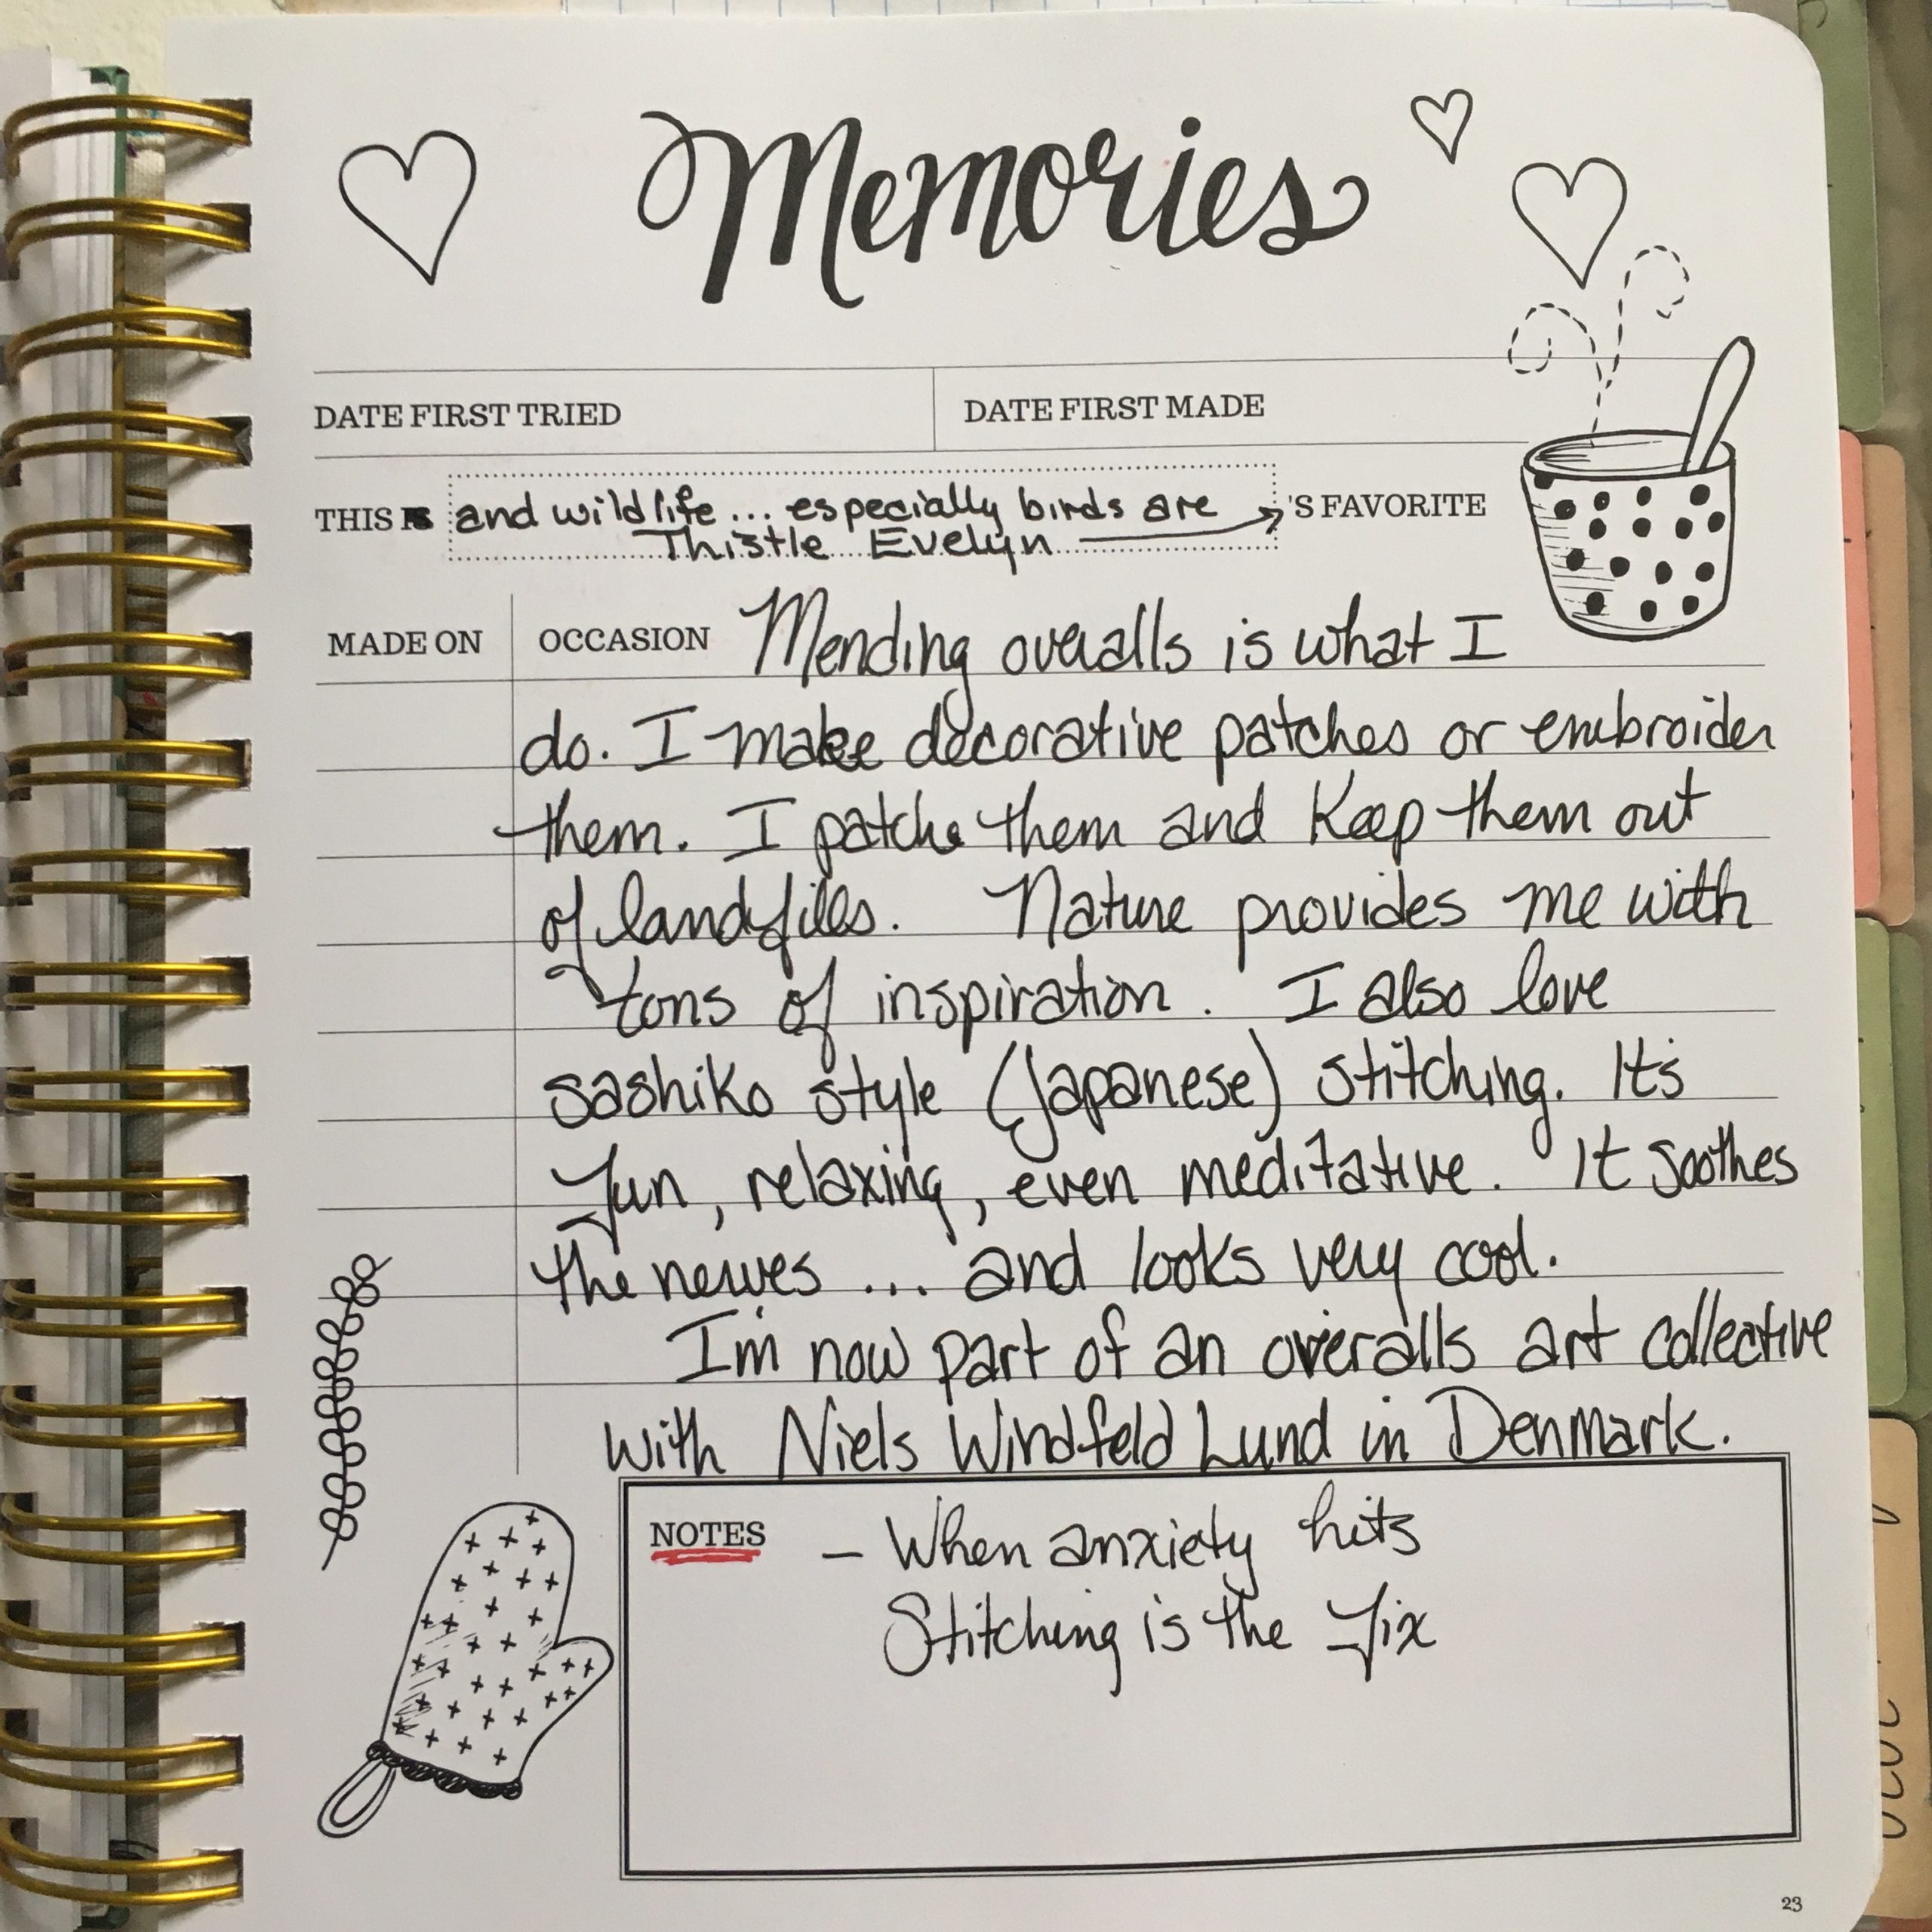 Memories
DATE FIRST TRIED
DATE FIRST MADE
THIS IS and wildlife... especially birds are 'S FAVORITE
Thistle Evelyn
MADE ON
OCCASION Mending overalls is what I
do. I make decorative patches or embroider
them. I patche them and Keep them out
of landfills. Nature provides me with
tons of inspiration. I also love
sashiko style (Japanese) stitching. It's
fun, relaxing, even meditative. It soothes
the nerves ... and looks very cool.
I'm now part of an overalls art collective
with Niels Windfeld Lund in Denmark.
NOTES – When anxiety hits
Stitching is the fix
23